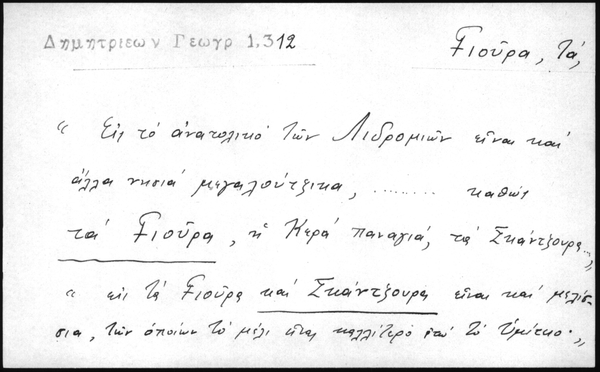 Δημητριεων Γεωγρ 1,312
Γιοῦρα, τά,
“ Εἰς τό ἀνατολικό τῶν Λιδρομιῶν εἶναι καί
ἄλλα νησιά μεγαλούτζικα, ........ καθώς
τά Γιοῦρα, ἡ Κερά παναγιά, τά Σκάντζουρα...„
“ εἰς τά Γιοῦρα καί Σκάντζουρα εἶναι καί μελίσ-
σια, τῶν ὁποίων τό μέλι εἶναι καλλίτερο ἀπό τό Ὑμίτιο·„